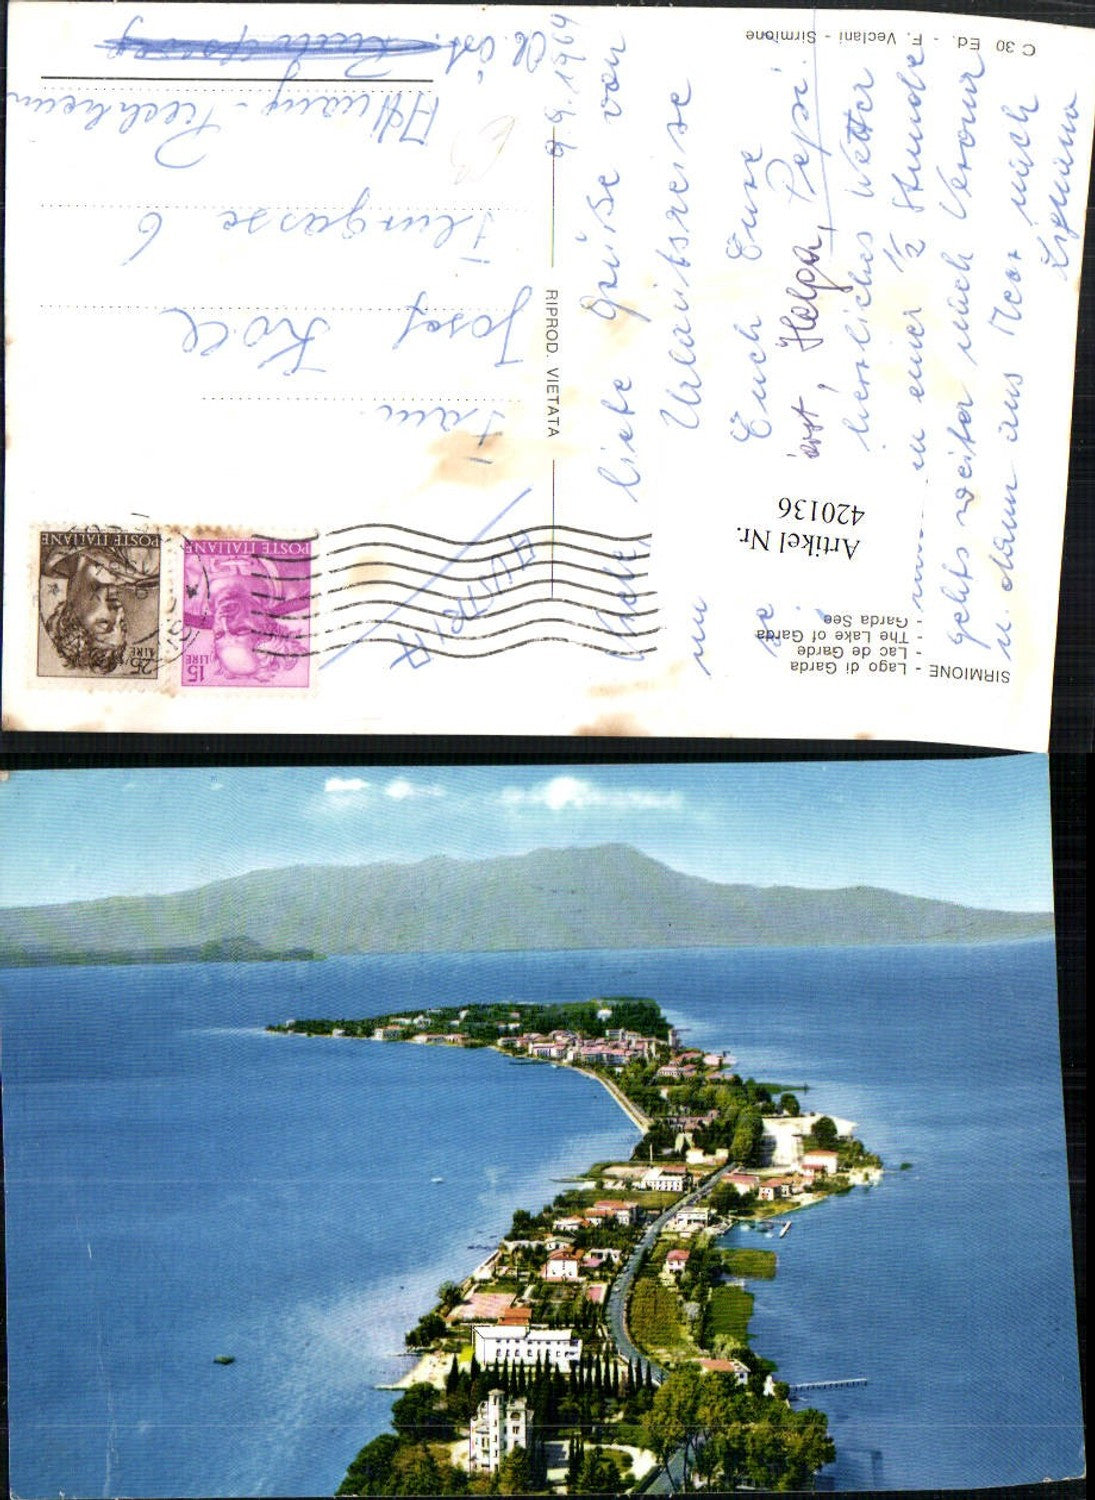 SIRMIONE - Lago di Garda
- Lac de Garde
- The Lake of Garda
- Garda See
Artikel Nr.
420136
9.9.1964
liebe Grüße von
Urlaubsreise
Euch Eure
Helga, Pepi.
herrliches Wetter
in einer 1/2 Stunde
gehts weiter nach Verona
u. dann ans Meer nach
Lignano
C 30 Ed. - F. Veclani - Sirmione
RIPROD. VIETATA
15
LIRE
POSTE ITALIANE
25
LIRE
POSTE ITALIANE
AUSTRIA
Fam.
Josef Koll
Flurgasse 6
Attnang-Puchheim
O. Öst.